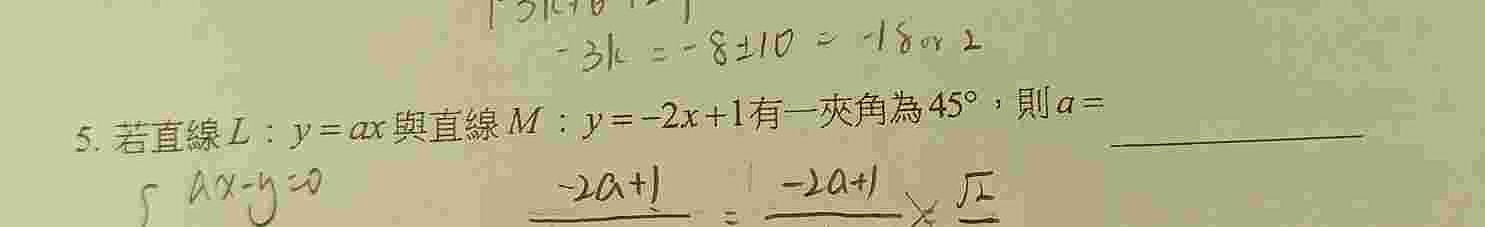 -3k = -8±10 = -18 or 2
5. 若直線 L：y=ax 與直線 M：y=-2x+1 有一夾角為 45°，則 a=
ax-y=0 -2a+1 = -2a+1 × √2